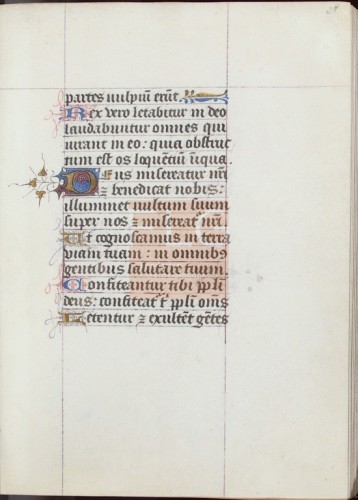 partes uulpiũ erũt.
Rex vero letabitur in deo
laudabuntur omnes qui
iurant in eo: quia obstruc
tum est os loquẽciũ iiqua.
Deus misereatur nr̃i
⁊ benedicat nobis:
illuminet uultum suum
super nos ⁊ misereat̃ nr̃i.
Ut cognoscamus in terra
viam tuam: in omnibꝯ
gentibus salutare tuum.
Confiteantur tibi pp̃li
deus: confiteat̃ t̃ pp̃li om̃s
Letentur ⁊ exultẽt gẽtes